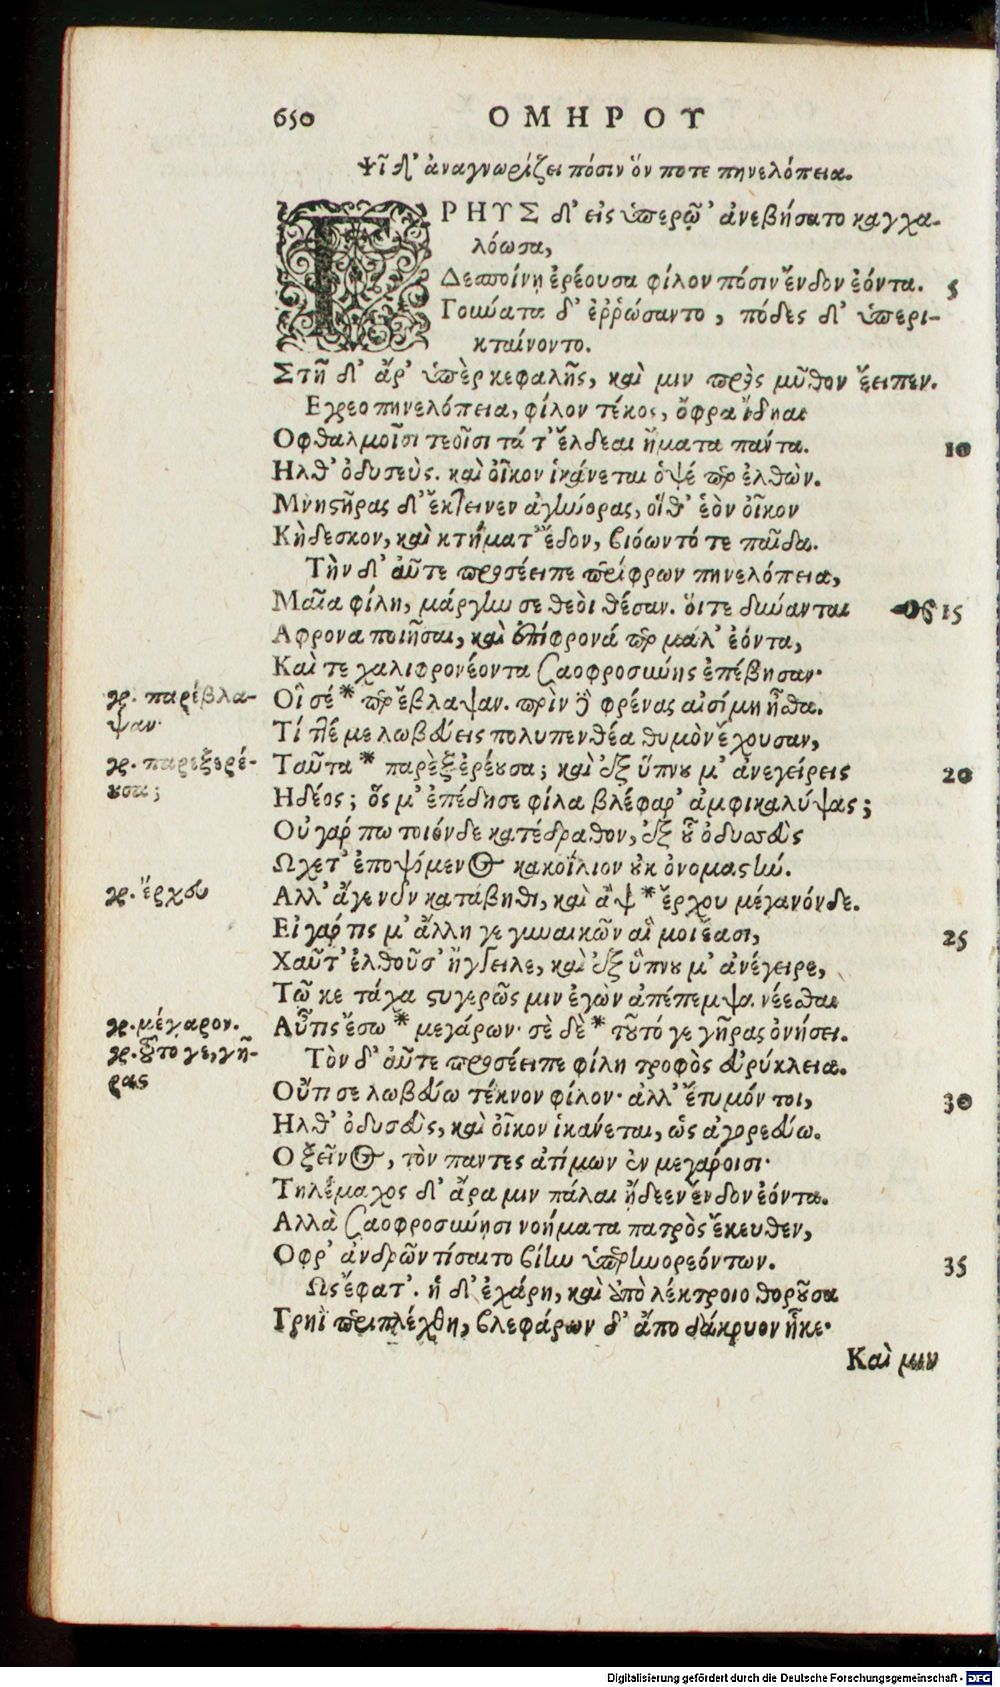 650 ΟΜΗΡΟΥ
Ψῖ δ' ἀναγνωρίζει πόσιν ὅν ποτε πηνελόπεια.
ΓΡΗΥΣ δ' εἰς ὑπερῷ' ἀνεβήσατο καγχα-
λόωσα,
Δεσποίνῃ ἐρέουσα φίλον πόσιν ἔνδον ἐόντα. 5
Γούνατα δ' ἐῤῥώσαντο, πόδες δ' ὑπερι-
κταίνοντο.
Στῆ δ' ἄρ' ὑπὲρ κεφαλῆς, καί μιν πρὸς μῦθον ἔειπεν.
Εγρεο πηνελόπεια, φίλον τέκος, ὄφρα ἴδηαι
Οφθαλμοῖσι τεοῖσι τά τ' ἔλδεαι ἤματα πάντα. 10
Ηλθ' ὀδυσεὺς. καὶ οἶκον ἱκάνεται ὀψέ περ ἐλθὼν.
Μνηστῆρας δ' ἔκτεινεν ἀγήνορας, οἵθ' ἑὸν οἶκον
Κήδεσκον, καὶ κτήματ' ἔδον, βιόωντό τε παῖδα.
Τὴν δ' αὖτε προσέειπε περίφρων πηνελόπεια,
Μαῖα φίλη, μάργην σε θεοὶ θέσαν. ὅιτε δύνανται 15
Αφρονα ποιῆσαι, καὶ ἐπίφρονά περ μάλ' ἐόντα,
Καί τε χαλιφρονέοντα σαοφροσύνης ἐπέβησαν·
γρ. παρέβλα-
ψαν·
Οἵ σέ * περ ἔβλαψαν. πρὶν δὲ φρένας αἰσίμη ἦσθα.
Τίπτέ με λωβεύεις πολυπενθέα θυμὸν ἔχουσαν,
γρ. παρεξερέ-
ουσα;
Ταῦτα * παρὲξ ἐρέουσα; καὶ ἐξ ὕπνου μ' ἀνεγείρεις 20
Ηδέος; ὅς μ' ἐπέδησε φίλα βλέφαρ' ἀμφικαλύψας;
Οὐ γάρ πω τοιόνδε κατέδραθον, ἐξ οὗ ὀδυσσεὺς
Ωχετ' ἐποψόμενος κακοΐλιον οὐκ ὀνομαστήν.
γρ. ἔρχευ
Αλλ' ἄγε νῦν κατάβηθι, καὶ ἂψ * ἔρχου μέγανόνδε.
Εἰ γάρ τίς μ' ἄλλη γε γυναικῶν αἵ μοι ἔασι, 25
Χαῦτ' ἐλθοῦσ' ἤγγειλε, καὶ ἐξ ὕπνου μ' ἀνέγειρε,
Τῷ κε τάχα στυγερῶς μιν ἐγὼν ἀπέπεμψα νέεσθαι
γρ. μέγαρον.
Αὖτις ἔσω * μεγάρων· σὲ δὲ * τοῦτό γε γῆρας ὀνήσει.
γρ. οὗτο γε, γῆ-
ρας
Τὸν δ' αὖτε προσέειπε φίλη τροφὸς εὐρύκλεια.
Οὔτι σε λωβεύω τέκνον φίλον· ἀλλ' ἔτυμόν τοι, 30
Ηλθ' ὀδυσεὺς, καὶ οἶκον ἱκάνεται, ὡς ἀγορεύω.
Ο ξεῖνος, τὸν πάντες ἀτίμων ἐν μεγάροισι·
Τηλέμαχος δ' ἄρα μιν πάλαι ᾔδεεν ἔνδον ἐόντα.
Αλλὰ σαοφροσύνῃσι νοήματα πατρὸς ἔκευθεν,
Οφρ' ἀνδρῶν τίσαιτο βίην ὑπερηνορεόντων. 35
Ως ἔφατ'. ἡ δ' ἐχάρη, καὶ ἀπὸ λέκτροιο θοροῦσα
Γρηῒ περιπλέχθη, βλεφάρων δ' ἄπο δάκρυον ἧκε·
Καί μιν
Digitalisierung gefördert durch die Deutsche Forschungsgemeinschaft - DFG